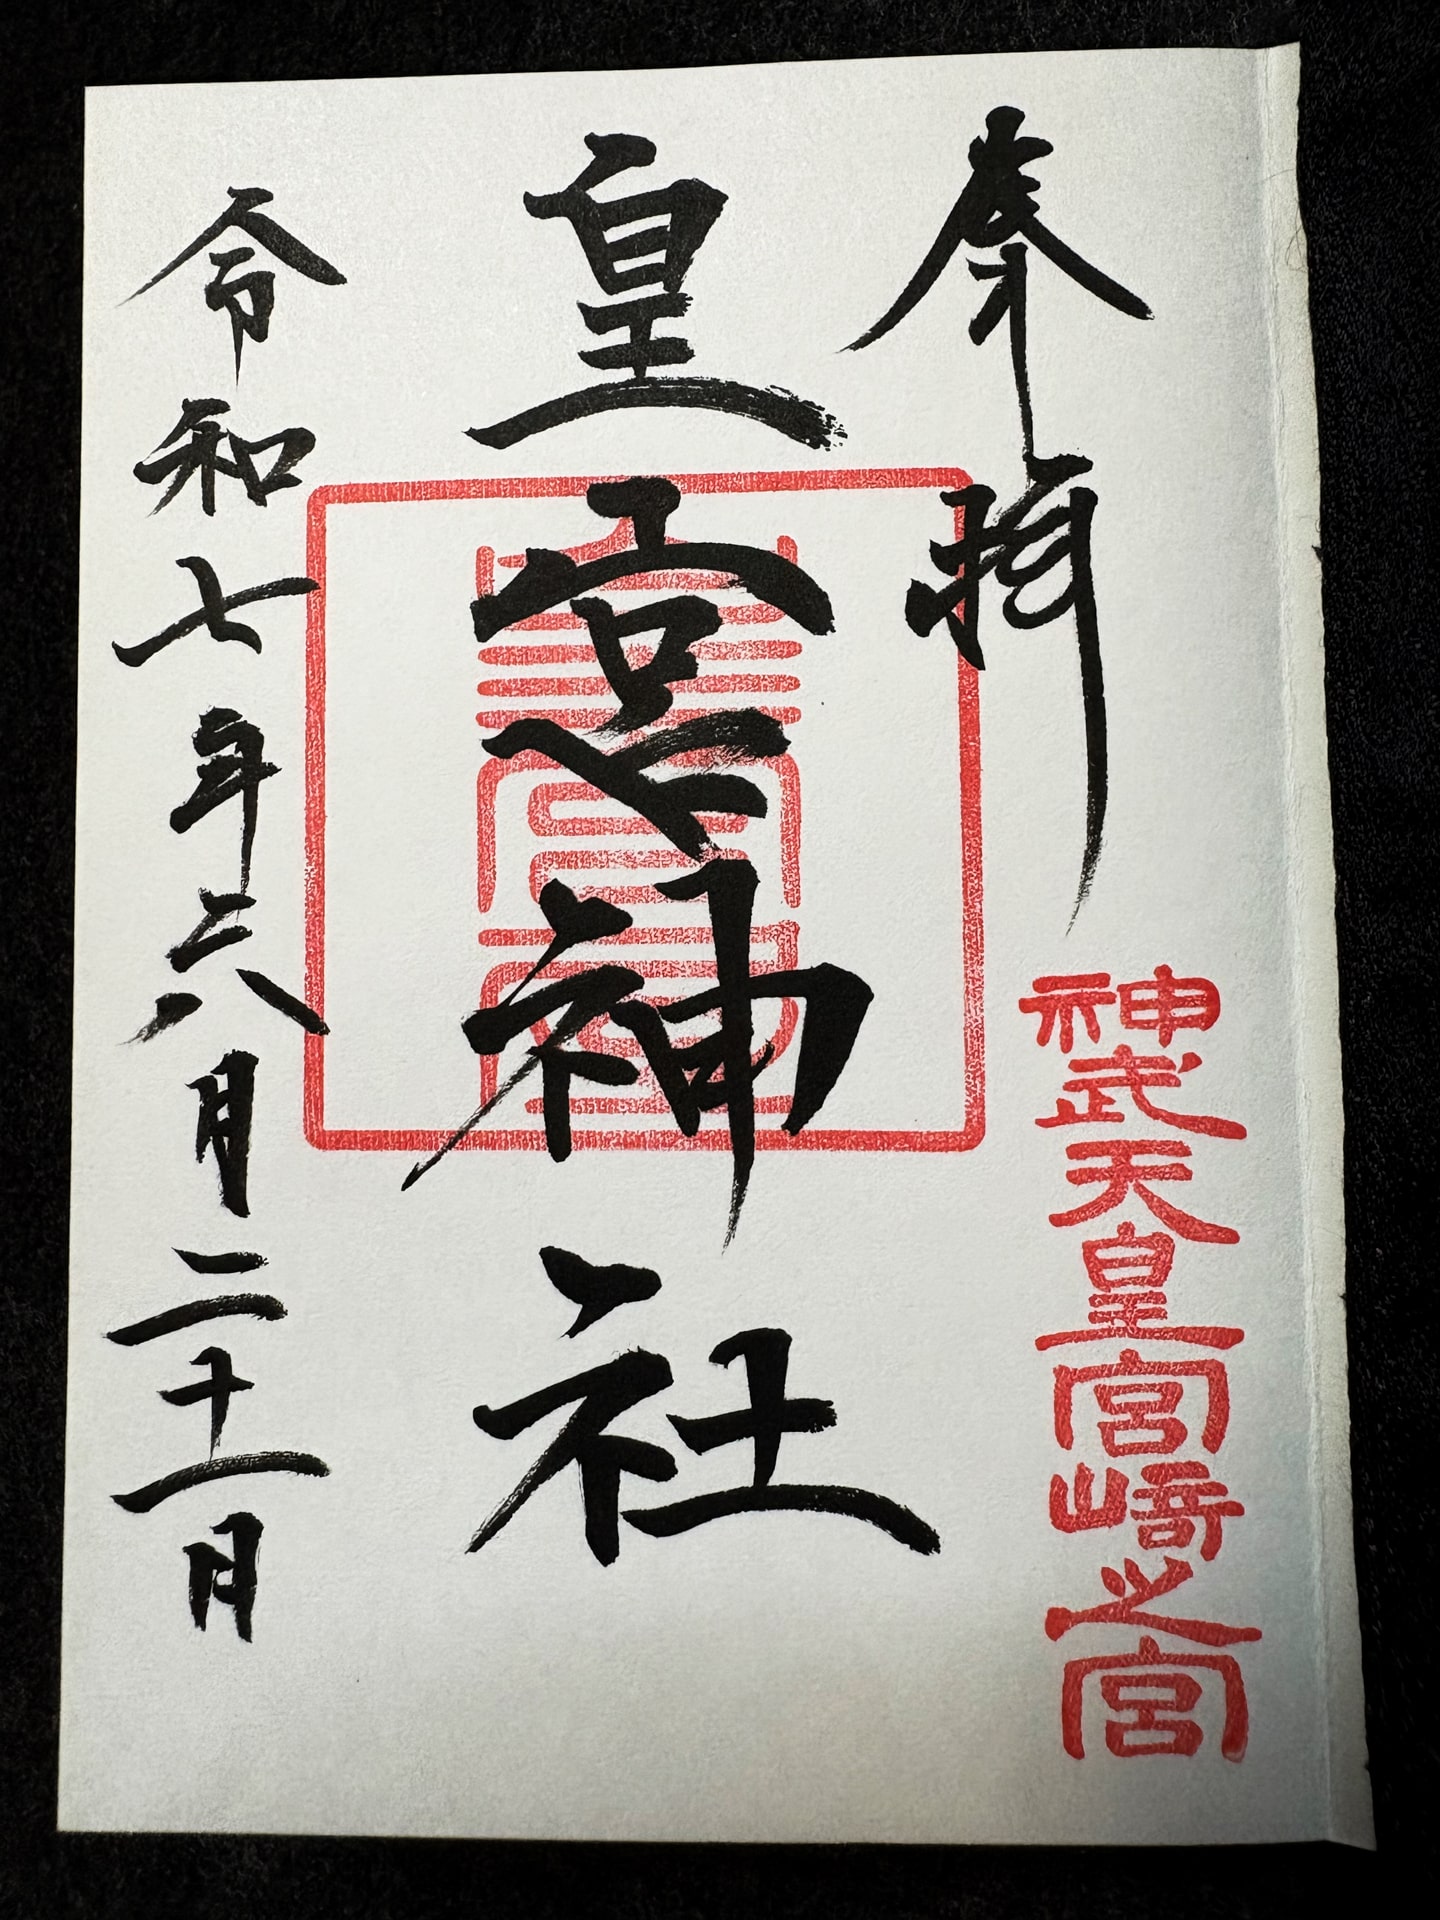 奉拝
神武天皇宮崎之宮
皇宮神社
令和七年六月二十一日